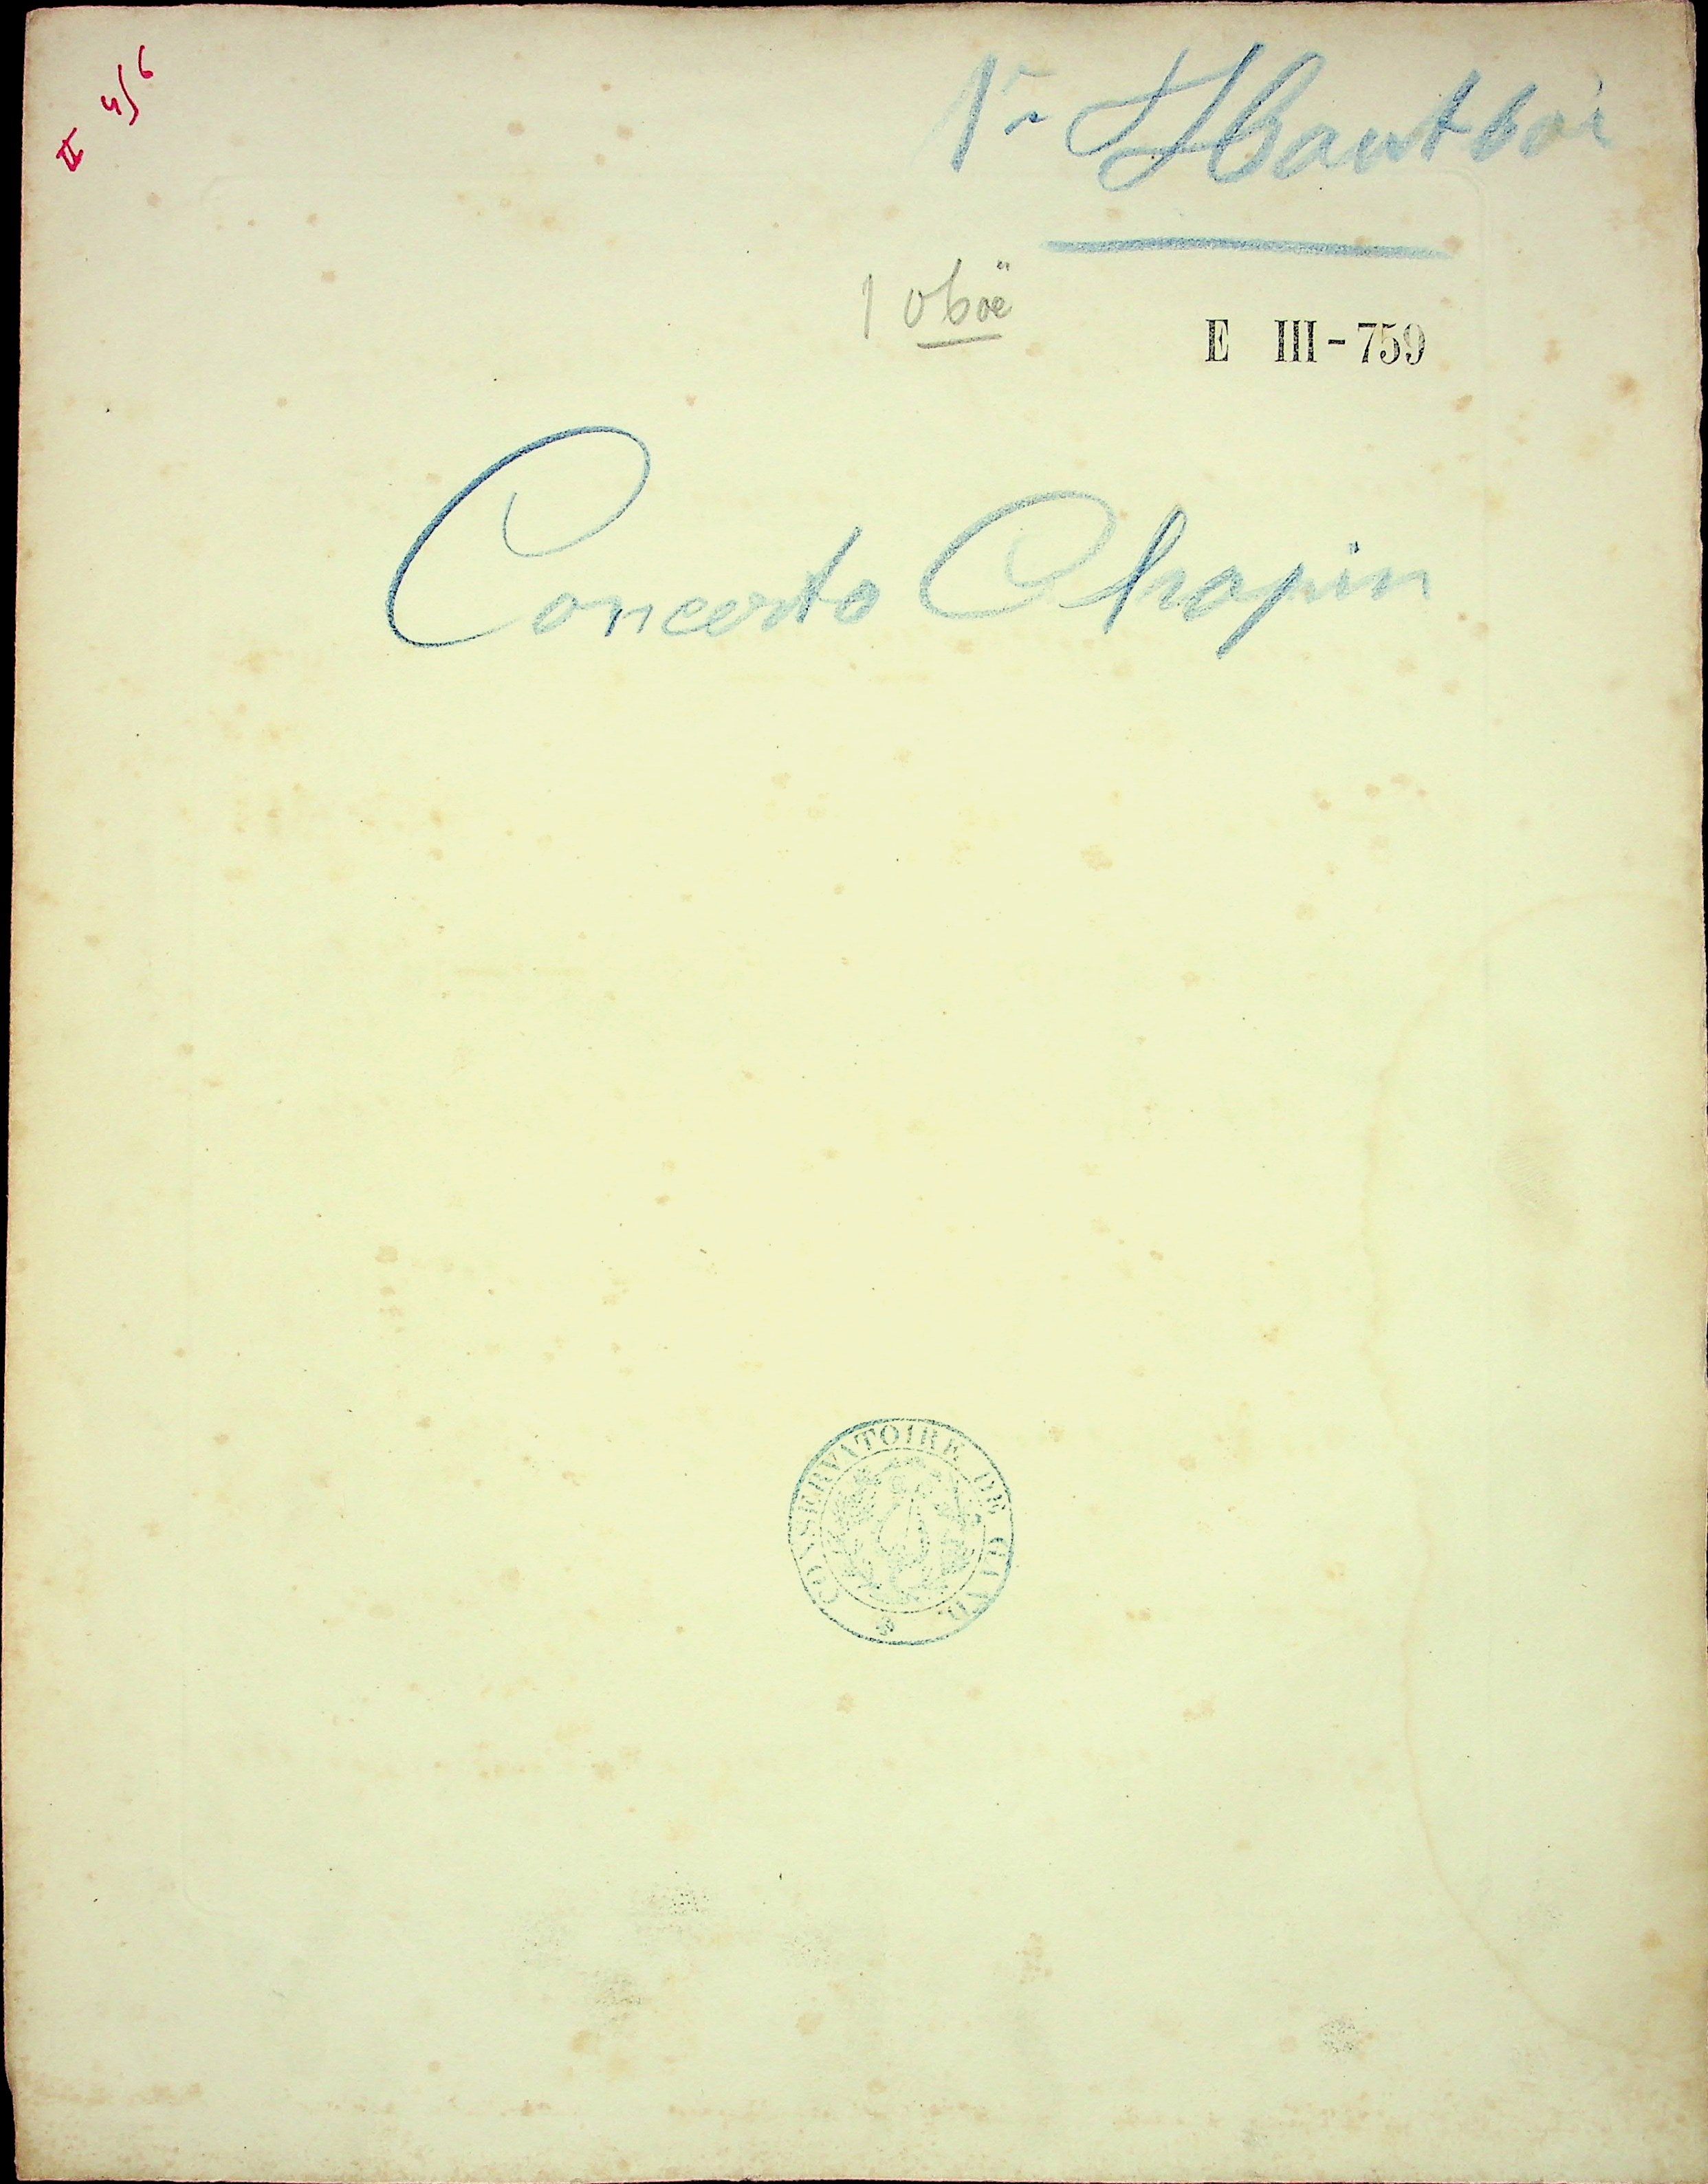 II 4/6
1r Hautboi
1 oboë
E III - 759
Concerto Chopin
CONSERVATOIRE DE GAND